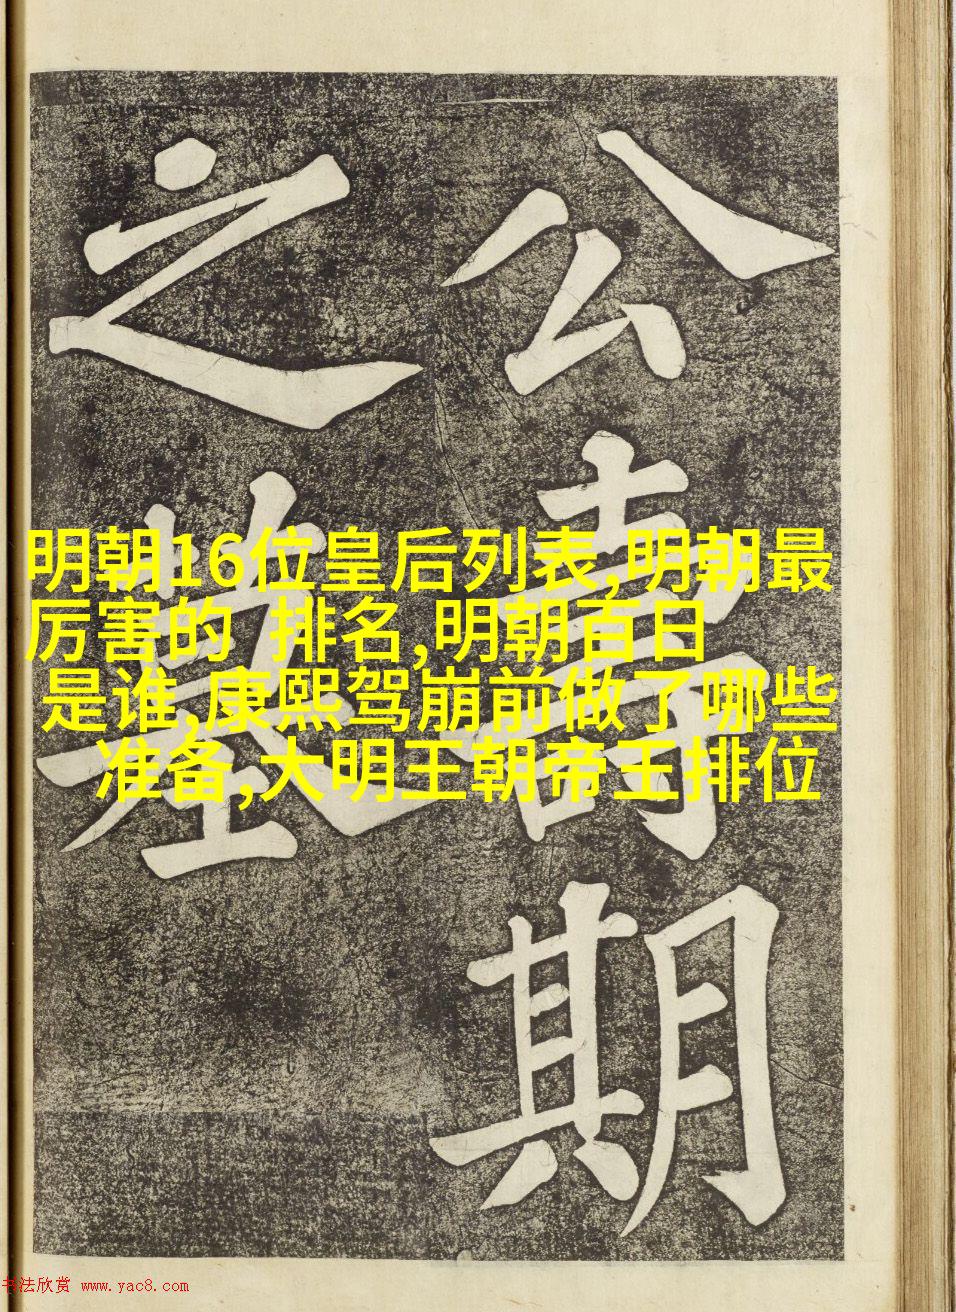 公壽期
之墓
明朝16位皇后列表,明朝最
厉害的 排名,明朝百日
是谁,康熙驾崩前做了哪些
准备,大明王朝帝王排位
书法欣赏 www.yac8.com